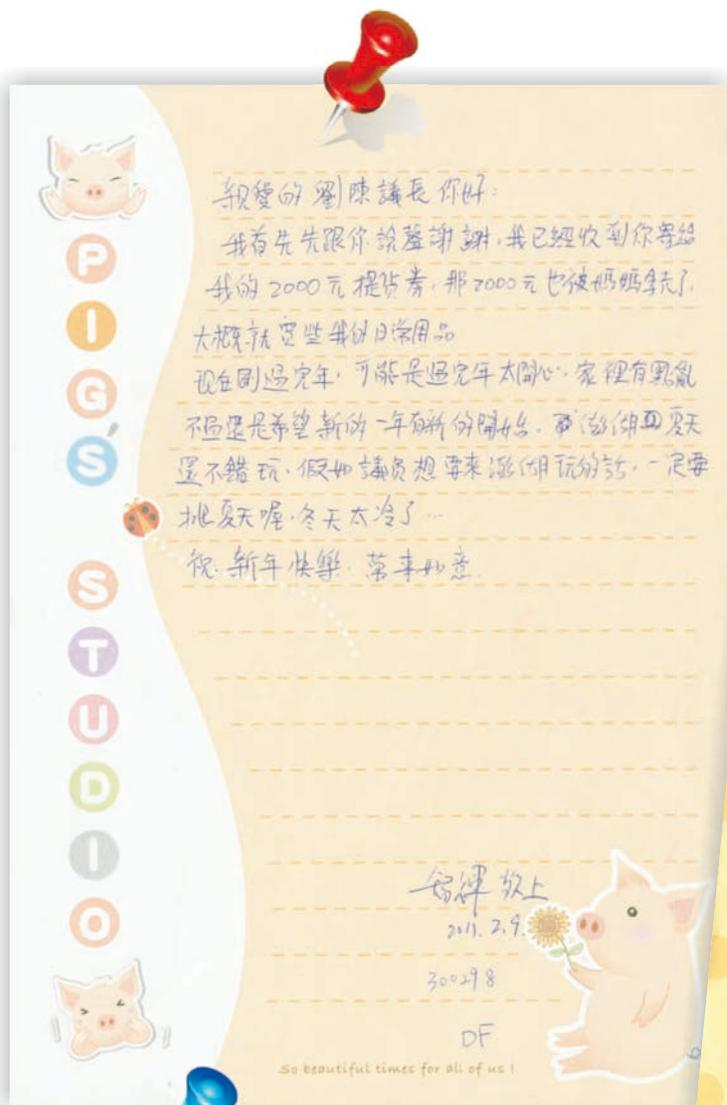 親愛的 劉陳議長 你好：
我首先先跟你說聲謝謝，我已經收到你寄給
我的2000元提貨券，那2000元也被媽媽拿走了，
大概就買些我的日常用品
現在剛過完年，可能是過完年太開心，家裡有點亂
不過還是希望新的一年有新的開始，澎湖夏天
還不錯玩，假如議員想要來澎湖玩的話，一定要
挑夏天喔，冬天太冷了…
祝 新年快樂，萬事如意
敬上
2011.2.9.
300298
DF
PIG'S STUDIO
So beautiful times for all of us !